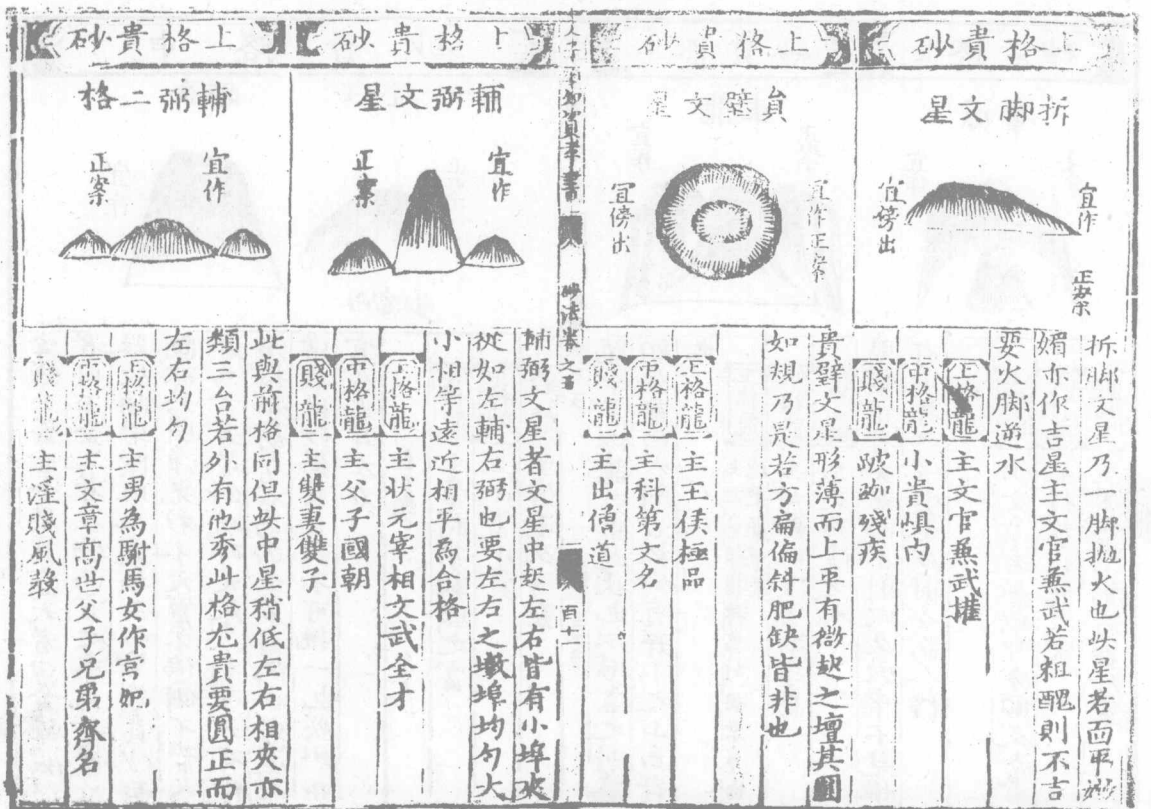 上格貴砂
折脚文星
宜作
正案
宜傍出
折脚文星乃一脚拋火也此星若面平
媚亦作吉星主文官兼武若粗醜則不吉
要火脚逆水
上格龍 主文官兼武權
中格龍 小貴惧内
賤龍 跛跏殘疾
上格貴砂
員璧文星
宜作正案
宜傍出
員璧文星形薄而上平有微起之壇其圓
如規乃是若方扁偏斜肥缺皆非也
上格龍 主王侯極品
中格龍 主科第文名
賤龍 主出僧道
砂法卷之五
百十
上格貴砂
輔弼文星
宜作
正案
輔弼文星者文星中起左右皆有小埠夾
從如左輔右弼也要左右之墩埠均勻大
小相等遠近相平為合格
上格龍 主狀元宰相文武全才
中格龍 主父子國朝
賤龍 主雙妻雙子
上格貴砂
輔弼二格
宜作
正案
此與前格同但此中星稍低左右相夾亦
類三台若外有他秀此格尤貴要圓正而
左右均勻
上格龍 主男為駙馬女作宮妃
中格龍 主文章高世父子兄弟齊名
賤龍 主淫賤風聲